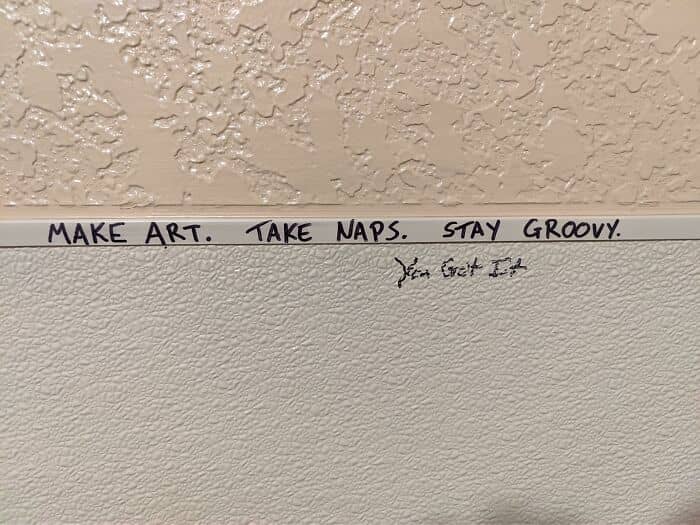 MAKE ART. TAKE NAPS. STAY GROOVY.
You Got It